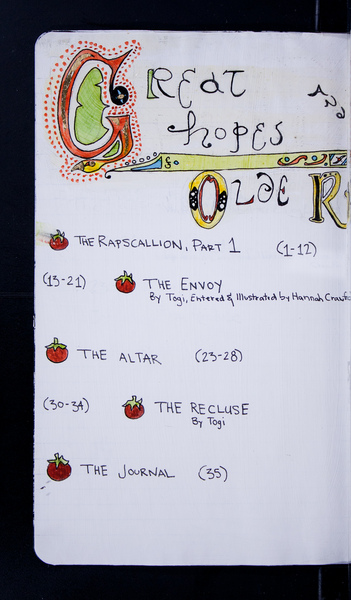 Great And
hopes
Olde R
The Rapscallion, Part 1 (1-12)
(13-21) The Envoy
By Togi, Entered & Illustrated by Hannah
The Altar (23-28)
(30-34) The Recluse
By Togi
The Journal (35)